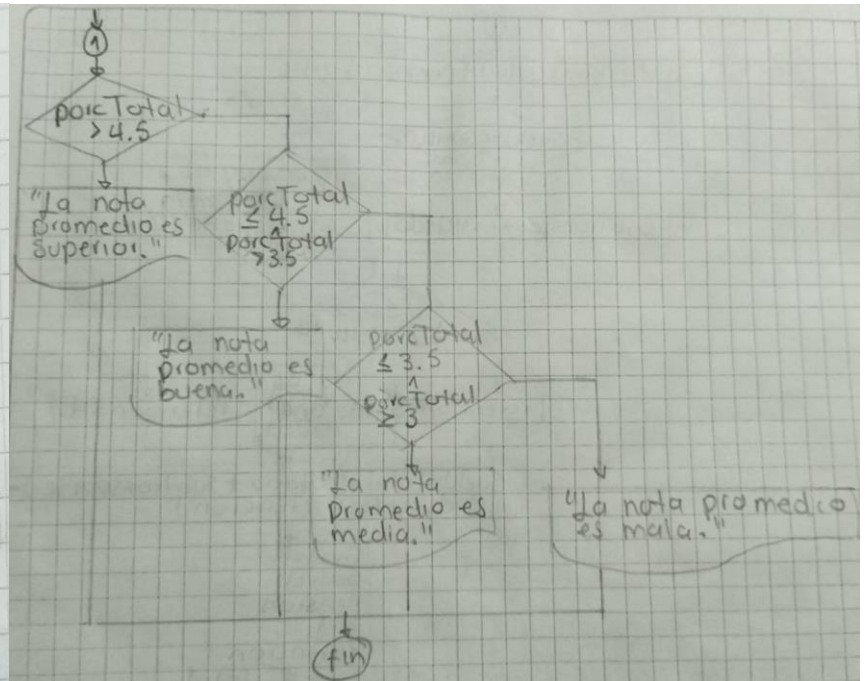 1
porcTotal
> 4.5
"La nota
promedio es
Superior."
porcTotal
≤ 4.5
^
porcTotal
> 3.5
"La nota
promedio es
buena."
porcTotal
≤ 3.5
^
porcTotal
≥ 3
"La nota
promedio es
media."
"La nota promedio
es mala."
fin